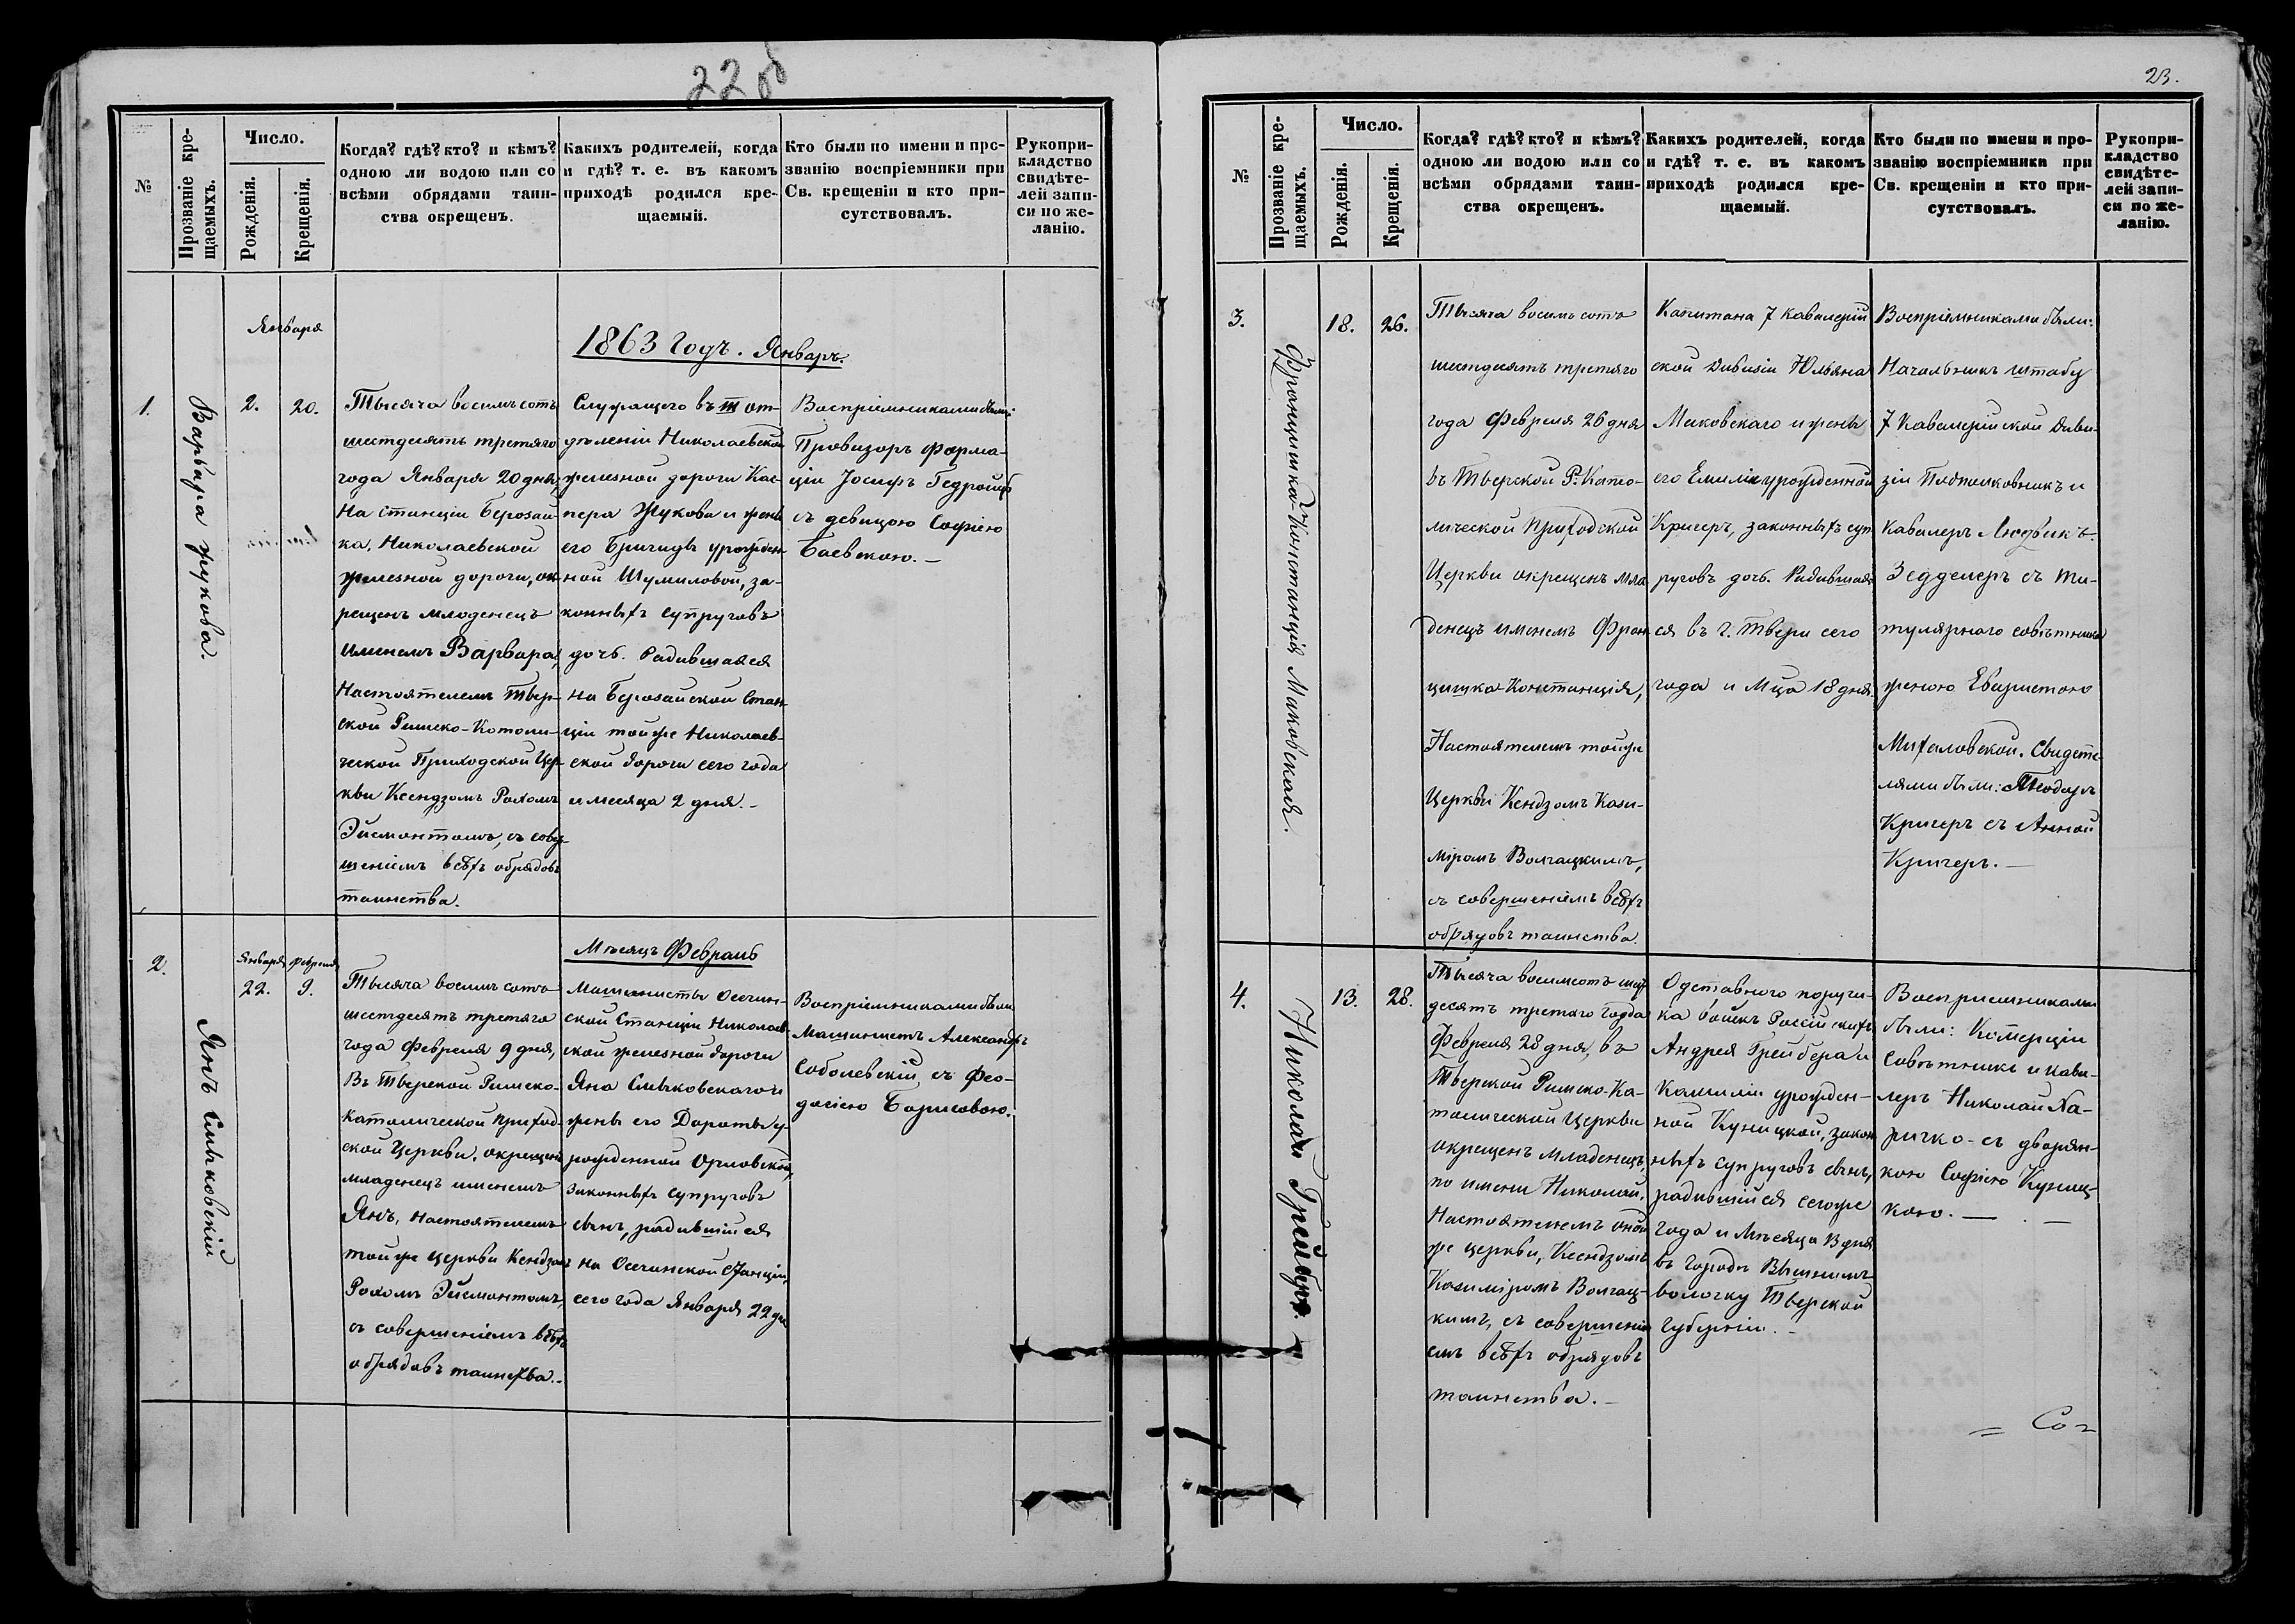 22 об
№
Прозваніе кре-
щаемыхъ.
Число.
Рожденія.
Крещенія.
Когда? гдѣ? кто? и кѣмъ?
одною ли водою или со
всѣми обрядами таин-
ства окрещенъ.
Какихъ родителей, когда
и гдѣ? т. е. въ какомъ
приходѣ родился кре-
щаемый.
Кто были по имени и про-
званію воспріемники при
Св. крещеніи и кто при-
сутствовалъ.
Рукопри-
кладство
свидѣте-
лей запи-
си по же-
ланію.
1863 Годъ. Январь.
Января
1.
Варвара Жукова.
2.
20.
Тысяча восимъ сотъ
шестдесятъ третяго
года Января 20 дня,
На станціи Берозай-
ка, Николаевской
железной дороги, ок-
рещенъ младенецъ
именемъ Варвара,
Настоятелемъ Твер-
ской Римско-Католи-
ческой Приходской Цер-
кви Ксендзомъ Рохомъ
Эйсмонтомъ, съ совер-
шеніемъ всѣхъ обрядовъ
таинства.
Служащего въ III от-
деленіи Николаевской
железной дороги Кас-
пера Жукова и жены
его Бригиды урожден-
ной Шумиловой, за-
конныхъ супруговъ
дочь. Радившаяся
на Берозайской Стан-
ціи тойже Николаев-
ской дороги сего года
и месяца 2 дня.-
Воспріемниками были:
Провизоръ Форма-
ціи Іосифъ Гедройцъ
съ девицою Софіею
Баевскою.-
Мѣсяцъ Февраль
2.
Янъ Смыковскій
Января
22.
февраля
9.
Тысяча восимъ сотъ
шестдесятъ третяго
года Февраля 9 дня,
Въ Тверской Римско-
Католической приход-
ской Церкви, окрещенъ
младенецъ именемъ
Янъ, настоятелемъ
тойже церкви Кендзомъ
Рохомъ Эйсмонтомъ,
съ совершеніемъ всѣхъ
обрядовъ таинства.-
Машинисты Осечин-
ской Станціи Николаев-
ской железной дороги
Яна Смыковскаго и
жены его Дороты у-
рожденной Орловской,
законныхъ супруговъ
сынъ, радившійся
на Осечинской станціи,
сего года Января 22 дня
Воспріемниками были
Машинистъ Александръ
Соболевскій съ Фео-
досіею Борисовою.-
23.
№
Прозваніе кре-
щаемыхъ.
Число.
Рожденія.
Крещенія.
Когда? гдѣ? кто? и кѣмъ?
одною ли водою или со
всѣми обрядами таин-
ства окрещенъ.
Какихъ родителей, когда
и гдѣ? т. е. въ какомъ
приходѣ родился кре-
щаемый.
Кто были по имени и про-
званію воспріемники при
Св. крещеніи и кто при-
сутствовалъ.
Рукопри-
кладство
свидѣте-
лей запи-
си по же-
ланію.
3.
Францишка-Констанція Маковская.
18.
26.
Тысяча восимъ сотъ
шестдесятъ третяго
года Февраля 26 дня
въ Тверской Р. Като-
лической Приходской
Церкви окрещенъ мла
денецъ именемъ Фран
цишка Констанція,
Настоятелемъ тойже
Церкви Кендзомъ Кази-
міромъ Волгацкимъ,
съ совершеніемъ всѣхъ
обрядовъ таинства.
Капитана 7 Кавалерій
ской дивизіи Юльяна
Маковскаго и жены
его Емиліи урожденной
Кригеръ, законныхъ суп
руговъ дочь. Радившая
ся въ г. Твери сего
года и Мца 18 дня.
Воспріемниками были:
Начальникъ штабу
7 Кавалерійской диви-
зіи Подполковникъ и
Кавалеръ Людвикъ
Зедделеръ съ ти-
тулярнаго совѣтника
женою Еваристою
Михаловской. Свидете
лями были: Теодоръ
Кригеръ съ Анной
Кригеръ.-
4.
Николай Грейберъ.
13.
28.
Тысяча восимсотъ шест
десятъ третяго года
Февраля 28 дня, въ
Тверской Римско-Ка-
толической Церкви
окрещенъ младенецъ,
по имени Николай,
Настоятелемъ оной
же церкви, Ксендзомъ
Казиміромъ Волгац-
кимъ, съ совершені-
емъ всѣхъ обрядовъ
таинства.-
Одставного поручи-
ка войскъ Россійскихъ
Андрея Грейбера и
Камиліи урожден-
ной Куницкой, закон
ныхъ супруговъ сынъ,
радившійся сегоже
года и Мѣсяца 13 дня
въ городѣ Вышнемъ
волочку Тверской
Губерніи.-
Воспріемниками
были: Комерціи
Совѣтникъ и кава-
леръ Николай Ха-
ричко- съ дворян-
кою Софіею Куниц-
кою.-
= Со-